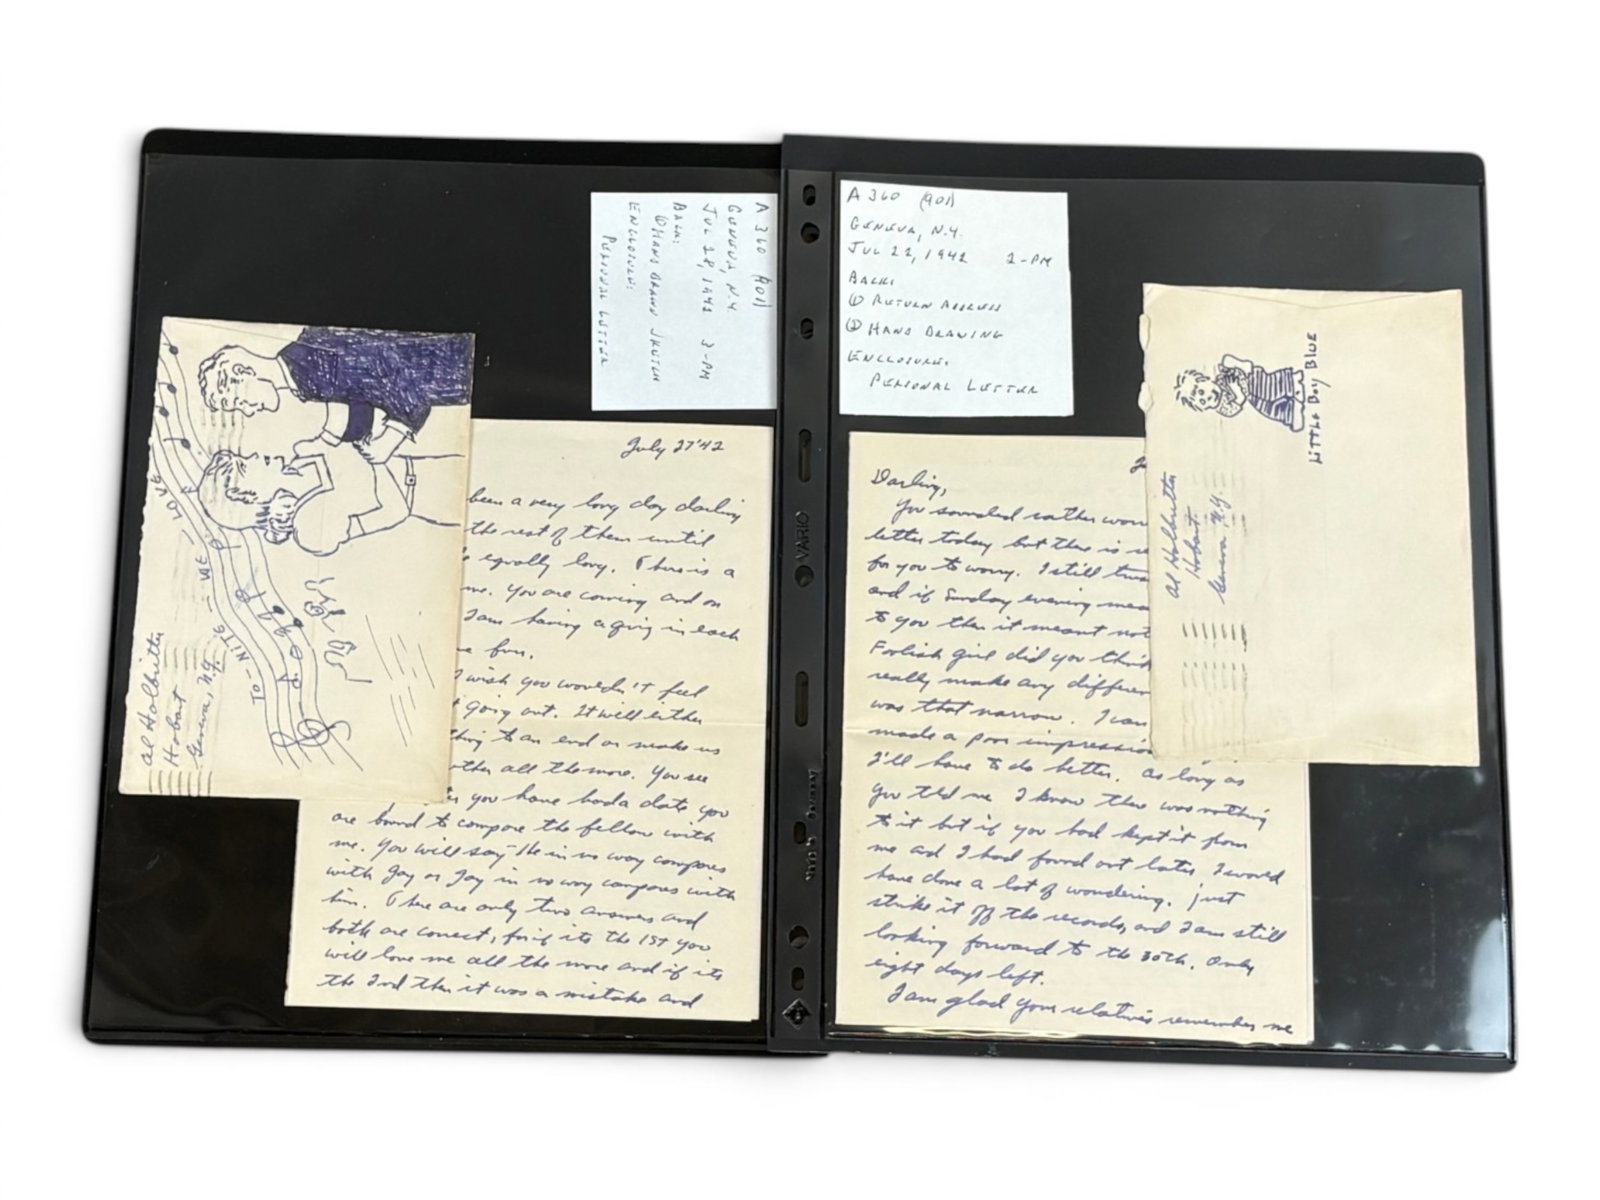 A 360 (901)
GENEVA, N.Y.
JUL 28, 1942 3-PM
BACK:
① HAND DRAWN SKETCH
ENCLOSURE:
PERSONAL LETTER
al Holbritter
Hobart
Geneva, N.Y.
TO-NITE-WE-LOVE
July 27 '42
been a very long day darling
the rest of them until
equally long. There is a
me. You are coming and on
I am having a grig in each
fun.
I wish you wouldn't feel
going out. It will either
thing to an end or make us
other all the more. You see
you have had a date you
are bound to compare the fellow with
me. You will say-He in no way compares
with Jay or Jay in no way compares with
him. There are only two answers and
both are correct, for if its the 1st you
will love me all the more and if its
the 2nd then it was a mistake and
VARIO
MADE IN GERMANY
A 360 (901)
GENEVA, N.Y.
JUL 22, 1942 2-PM
BACK:
① RETURN ADDRESS
② HAND DRAWING
ENCLOSURE:
PERSONAL LETTER
LITTLE BOY BLUE
al Holbritter
Hobart
Geneva, N.Y.
Darling,
You sounded rather
letter today but there is
for you to worry. I still
and if Sunday evening
to you then it meant
Foolish girl did you think
really make any
was that narrow. I
made a poor
I'll have to do better. As long as
you told me I know there was nothing
to it but if you had kept it from
me and I had found out later, I would
have done a lot of wondering. Just
strike it off the records, and I am still
looking forward to the 30th. Only
eight days left.
I am glad your relatives remember me